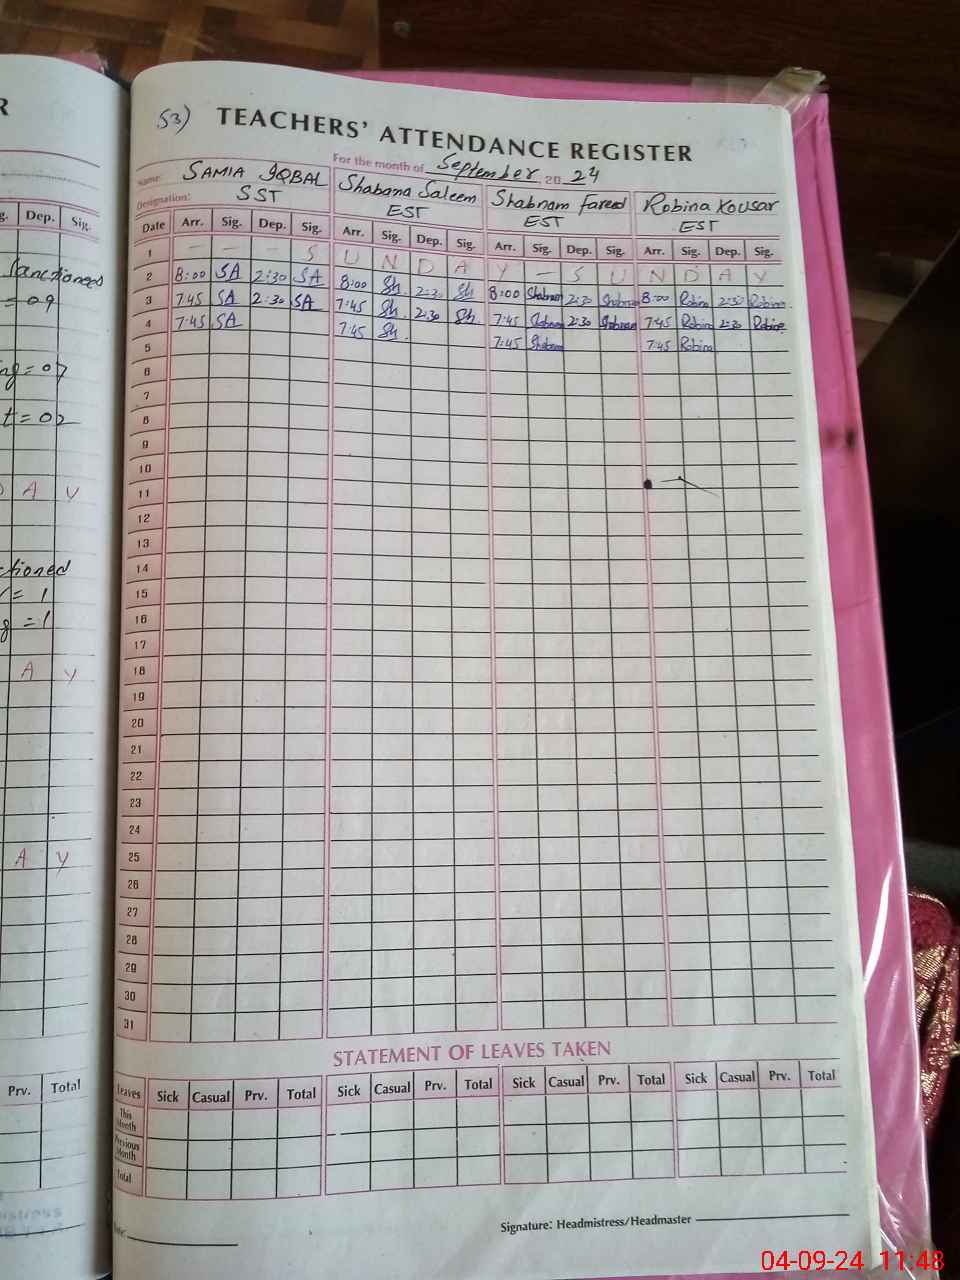 R
g. Dep. Sig.
Sanctioned
= 09
ng = 07
t = 02
A Y
ctioned
= 1
g = 1
A Y
A Y
Prv. Total
53) TEACHERS' ATTENDANCE REGISTER
For the month of September, 20 24
Name: SAMIA IQBAL Shabana Saleem Shabnam fareed Robina Kousar
Designation: SST EST EST EST
Date Arr. Sig. Dep. Sig. Arr. Sig. Dep. Sig. Arr. Sig. Dep. Sig. Arr. Sig. Dep. Sig.
1 — — — S U N D A Y — S U N D A Y
2 8:00 SA 2:30 SA 8:00 Sh 2:30 Sh 8:00 Shabnam 2:30 Shabnam 8:00 Robina 2:30 Robina
3 7:45 SA 2:30 SA 7:45 Sh 2:30 Sh 7:45 Shabnam 2:30 Shabnam 7:45 Robina 2:30 Robina
4 7:45 SA 7:45 Sh 7:45 Shabnam 7:45 Robina
5
6
7
8
9
10
11
12
13
14
15
16
17
18
19
20
21
22
23
24
25
26
27
28
29
30
31
STATEMENT OF LEAVES TAKEN
Leaves Sick Casual Prv. Total Sick Casual Prv. Total Sick Casual Prv. Total Sick Casual Prv. Total
This Month
Previous Month
Total
Signature: Headmistress/Headmaster
04-09-24 11:48